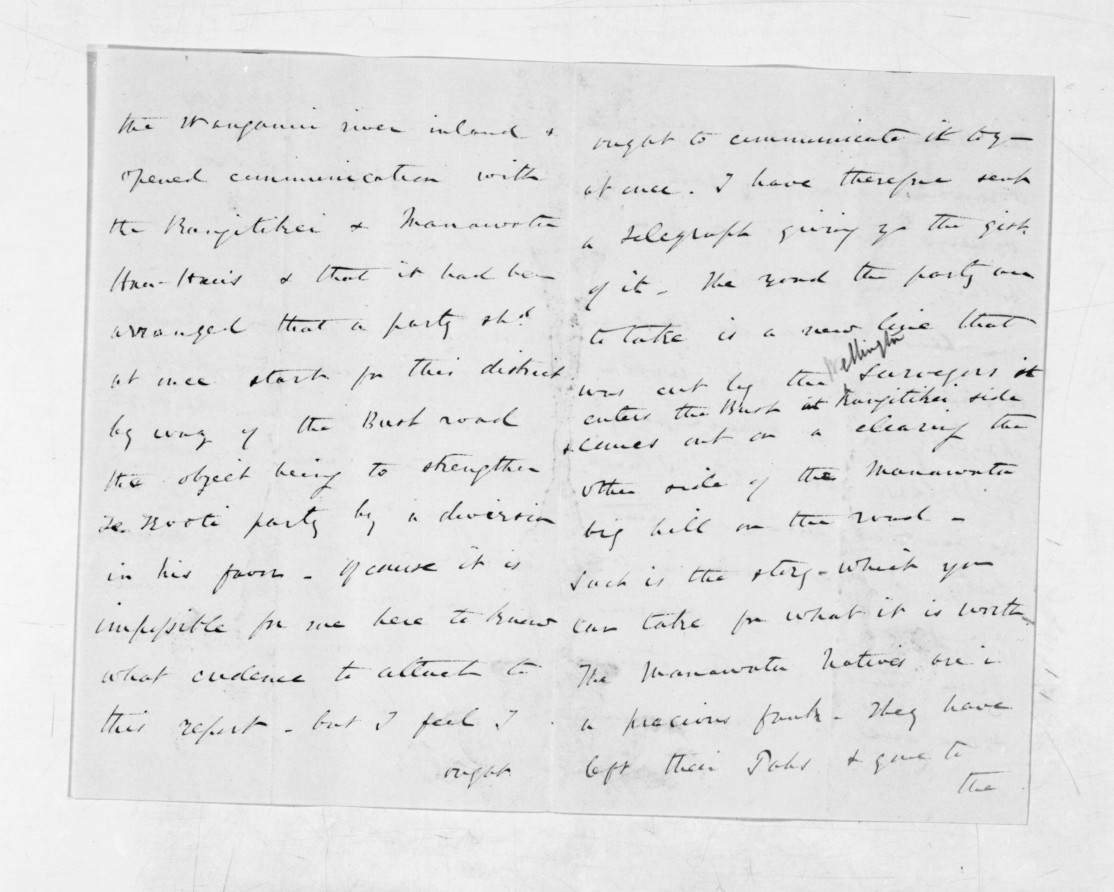 the Wanganui river inland &
opened communication with
the Rangitikei & Manawatu
Hau-Haus & that it had been
arranged that a party shd
at once start for this district
by way of the Bush road
the object being to strengthen
Te Kooti party by a diversion
in his favor - Of course it is
impossible for me here to know
what credence to attach to
this report - but I feel I
ought
ought to communicate it to y-
at once. I have therefore sent
a Telegraph giving yo the gist
of it - The road the party are
to take is a new line that
was cut by the Wellington Surveyors it
enters the Bush at Rangitikei side
& comes out on a clearing the
other side of the Manawatu
big hill on the road -
Such is the story - which you
can take for what it is worth
The Manawatu Natives are in
a precious funk - They have
left their Pahs & gone to
the